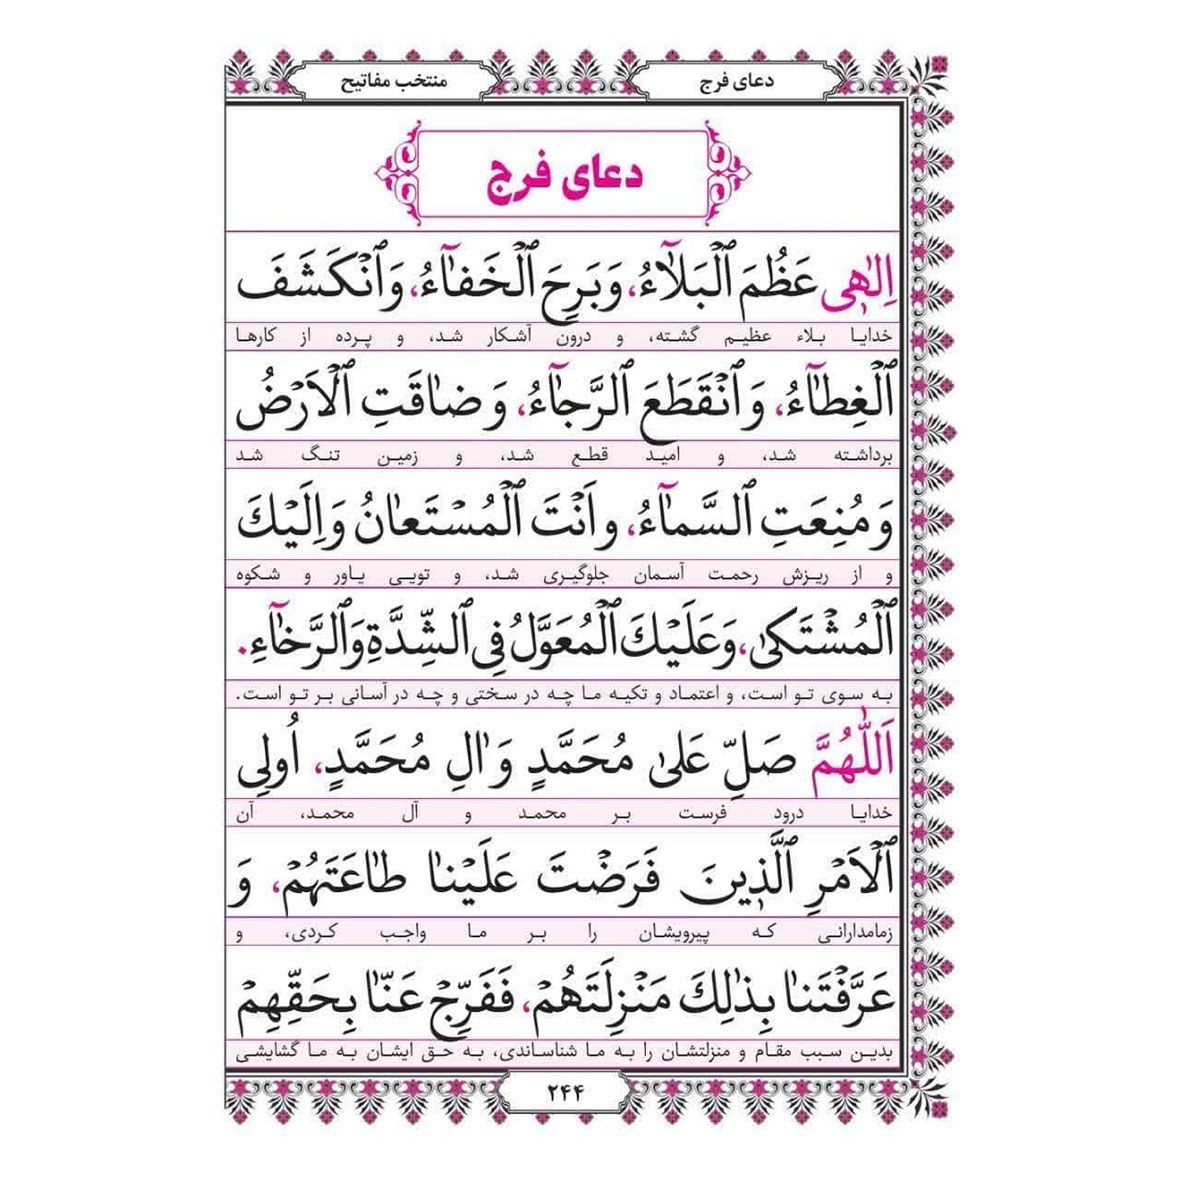 دعای فرج
منتخب مفاتیح
دعای فرج
اِلٰهِی عَظُمَ الْبَلٰٓاءُ، وَبَرِحَ الْخَفٰٓاءُ، وَانْكَشَفَ
خدایا بلاء عظیم گشته، و درون آشکار شد، و پرده از کارها
الْغِطٰٓاءُ، وَانْقَطَعَ الرَّجٰٓاءُ، وَضٰاقَتِ الْاَرْضُ
برداشته شد، و امید قطع شد، و زمین تنگ شد
وَمُنِعَتِ السَّمٰٓاءُ، واَنْتَ الْمُسْتَعٰانُ وَاِلَيْكَ
و از ریزش رحمت آسمان جلوگیری شد، و تویی یاور و شکوه
الْمُشْتَكىٰ، وَعَلَيْكَ الْمُعَوَّلُ فِی الشِّدَّةِ وَالرَّخٰٓاءِ.
به سوی تو است، و اعتماد و تکیه ما چه در سختی و چه در آسانی بر تو است.
اَللّٰهُمَّ صَلِّ عَلىٰ مُحَمَّدٍ وَ اٰلِ مُحَمَّدٍ، اُولِی
خدایا درود فرست بر محمد و آل محمد، آن
الْاَمْرِ الَّذِينَ فَرَضْتَ عَلَيْنٰا طٰاعَتَهُمْ، وَ
زمامدارانی که پیرویشان را بر ما واجب کردی، و
عَرَّفْتَنٰا بِذٰلِكَ مَنْزِلَتَهُمْ، فَفَرِّجْ عَنّٰا بِحَقِّهِمْ
بدین سبب مقام و منزلتشان را به ما شناساندی، به حق ایشان به ما گشایشی
۲۴۴